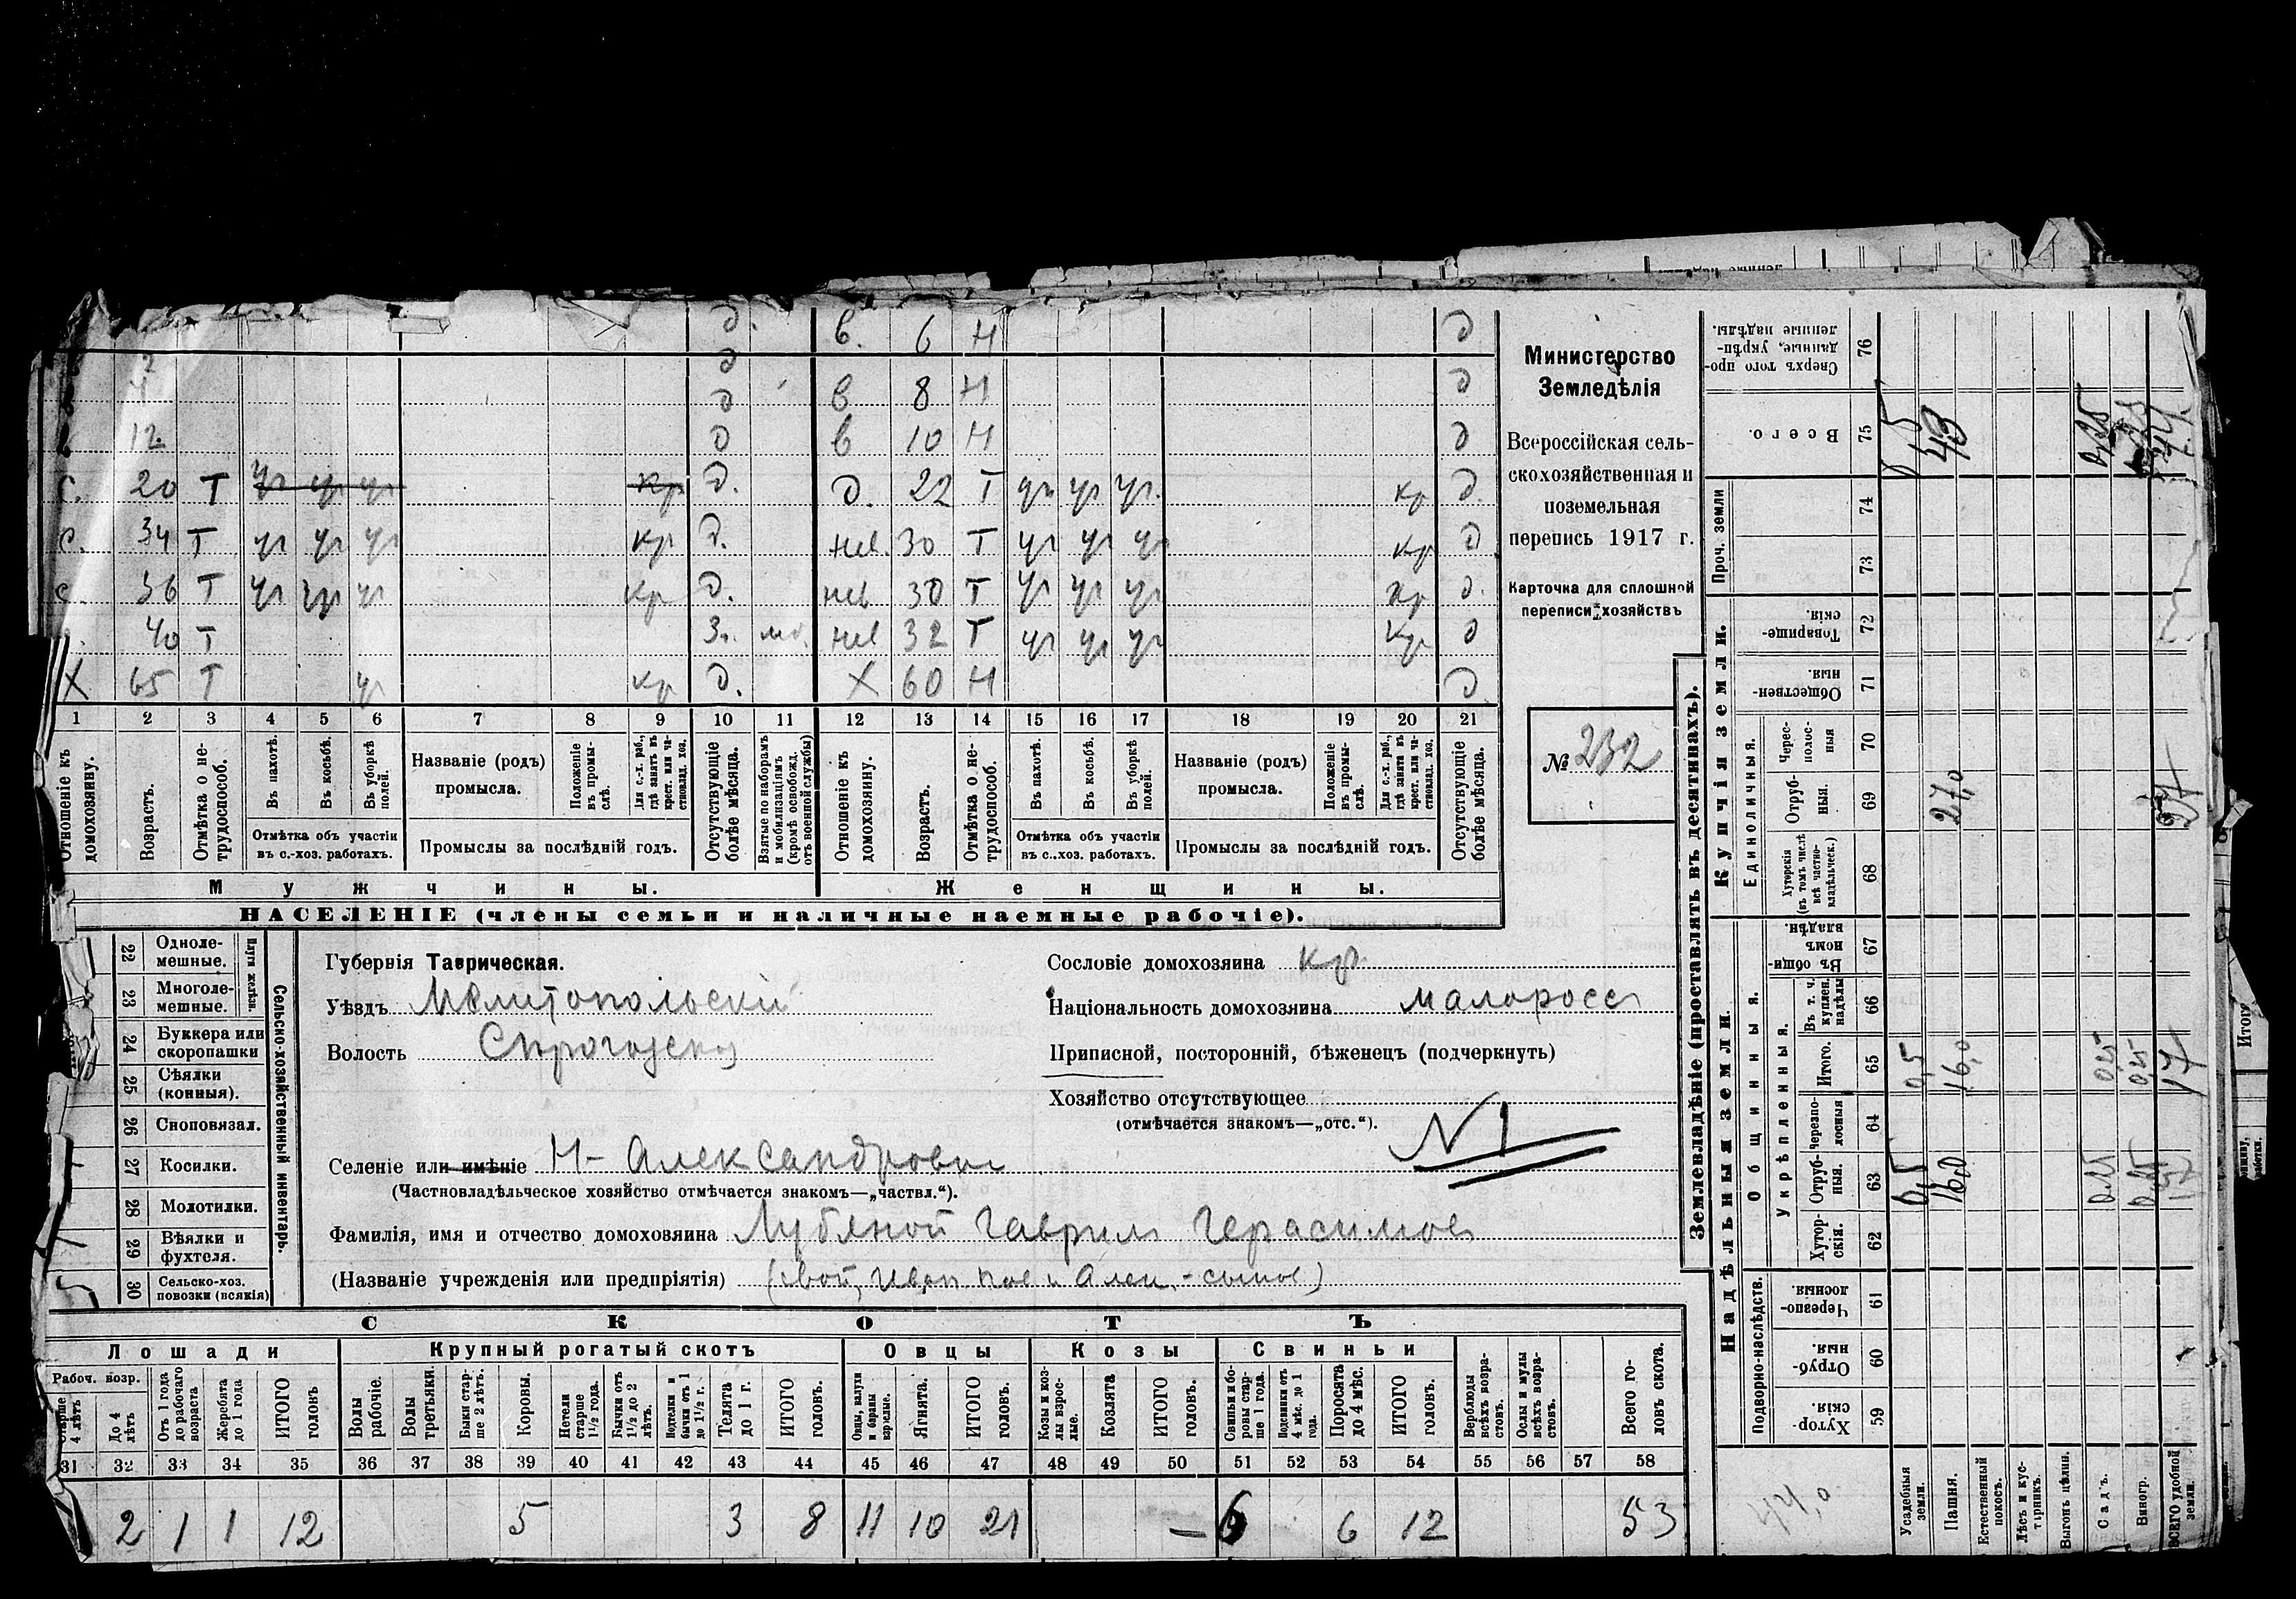 д. в. 6 Н д
2 д
4 д в 8 Н д
12 д в 10 Н д
с. 20 Т уч уч уч кр д. д. 22 Т уч уч уч. кр д.
с. 34 Т уч уч уч кр д. нев. 30 Т уч уч уч кр д.
с. 36 Т уч уч уч кр д. нев 30 Т уч уч уч кр д.
40 Т З. мб. нев 32 Т уч уч уч кр д
Х 65 Т уч кр д. Х 60 Н д.
1 2 3 4 5 6 7 8 9 10 11 12 13 14 15 16 17 18 19 20 21
Отношеніе къ домохозяину.
Возрастъ.
Отмѣтка о нетрудоспособ.
Въ пахотѣ.
Въ косьбѣ.
Въ уборкѣ полей.
Отмѣтка объ участіи
въ с.-хоз. работахъ.
Названіе (родъ)
промысла.
Положеніе въ промыслѣ.
Для с.-х. раб., гдѣ занятъ въ крест. или частновлад. хоз.
Промыслы за послѣдній годъ.
Отсутствующіе болѣе мѣсяца.
Взятые по наборамъ и мобилизаціямъ (кромѣ освобожд. отъ военной службы)
Отношеніе къ домохозяину.
Возрастъ.
Отмѣтка о нетрудоспособ.
Въ пахотѣ.
Въ косьбѣ.
Въ уборкѣ полей.
Отмѣтка объ участіи
въ с.-хоз. работахъ.
Названіе (родъ)
промысла.
Положеніе въ промыслѣ.
Для с.-х. раб., гдѣ занята въ крест. или частновлад. хоз.
Промыслы за послѣдній годъ.
Отсутствующіе болѣе мѣсяца.
Мужчины. Женщины.
НАСЕЛЕНІЕ (члены семьи и наличные наемные рабочіе).
Министерство
Земледѣлія
Всероссійская сель-
скохозяйственная и
поземельная
перепись 1917 г.
Карточка для сплошной
переписи хозяйствъ
№ 232
22 Одноле-
мешные.
23 Многоле-
мешные.
Плуги желѣзн.
24 Буккера или
скоропашки
25 Сѣялки
(конныя).
26 Сноповязал.
27 Косилки.
28 Молотилки.
29 Вѣялки и
фухтеля.
30 Сельско-хоз.
повозки (всякія)
Сельско-хозяйственный инвентарь.
Губернія Таврическая.
Уѣздъ Мелитопольскій
Волость
Сословіе домохозяина кр
Національность домохозяина малоросс
Приписной, посторонній, бѣженецъ (подчеркнуть)
Хозяйство отсутствующее
(отмѣчается знакомъ—„отс.“).
N 1
Селеніе или имѣніе Н- Александровка
(Частновладѣльческое хозяйство отмѣчается знакомъ—„частвл.“).
Фамилія, имя и отчество домохозяина Лубяной Гаврил Герасимов
(Названіе учрежденія или предпріятія)
СКОТЪ
Лошади Крупный рогатый скотъ Овцы Козы Свиньи
Рабоч. возр.
Старше 4 лѣтъ
До 4 лѣтъ
Отъ 1 года до рабочаго возраста
Жеребята до 1 года
ИТОГО головъ
Волы рабочіе.
Волы третьяки.
Быки старше 2 лѣтъ.
Коровы.
Нетели старше 1½ года.
Бычки отъ 1½ до 2 лѣтъ.
Подтелки и бычки отъ 1 до 1½ г.
Телята до 1 г.
ИТОГО головъ.
Овцы, валухи и бараны взрослые.
Ягнята.
ИТОГО головъ.
Козы и козлы взрослые.
Козлята
ИТОГО головъ.
Свиньи и боровы старше 1 года.
Подсвинки отъ 4 мѣс. до 1 года.
Поросята до 4 мѣс.
ИТОГО головъ.
Верблюды всѣхъ возрастовъ.
Ослы и мулы всѣхъ возрастовъ.
Всего головъ скота.
31 32 33 34 35 36 37 38 39 40 41 42 43 44 45 46 47 48 49 50 51 52 53 54 55 56 57 58
2 1 1 12 5 3 8 11 10 21 — 6 6 12 53
Землевладѣніе (проставлять въ десятинахъ).
Надѣльныя земли.
Купчія земли.
Проч. земли
Подворно-наслѣдств.
Общинныя.
Укрѣпленныя.
Единоличныя.
Сверхъ того проданные, укрѣпленные надѣлы. 76
Всего. 75
74
73
Товарищескія. 72
Общественныя 71
Чересполосныя 70
Отрубныя. 69
Хуторскія (въ томъ числѣ всѣ частновладѣльческ.) 68
Въ общинномъ владѣн. 67
Въ т. ч. куплен. надѣлы 66
Итого. 65
Черезполосныя 64
Отрубныя. 63
Хуторскія. 62
Черезполосныя 61
Отрубныя. 60
Хуторскія. 59
Усадебныя земли.
Пашня.
Естественный покосъ.
Лѣсъ и кустарникъ.
Выгонъ цѣлин.
Садъ.
Виногр.
ВСЕГО удобной земли.
0,5 43 0,25
27,0
0,5 16,0 0,25 0,25 17
0,5 16,0 0,25 0,25 17
44,0
Итого